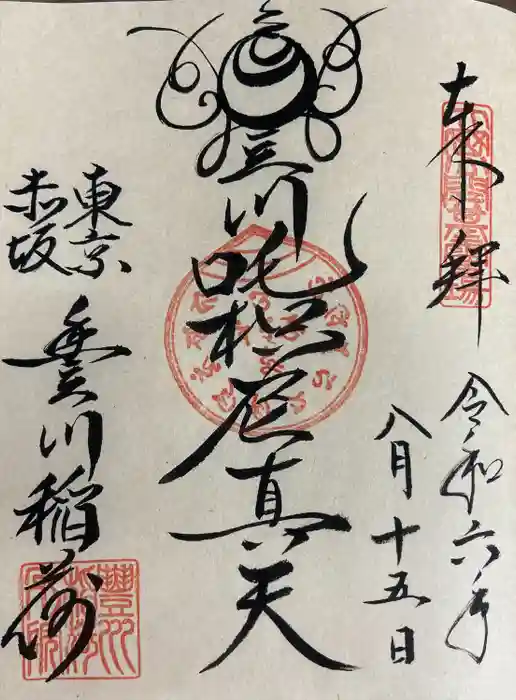 奉拝
令和六年
八月十五日
豐川吒枳尼真天
東京
赤坂
豊川稲荷